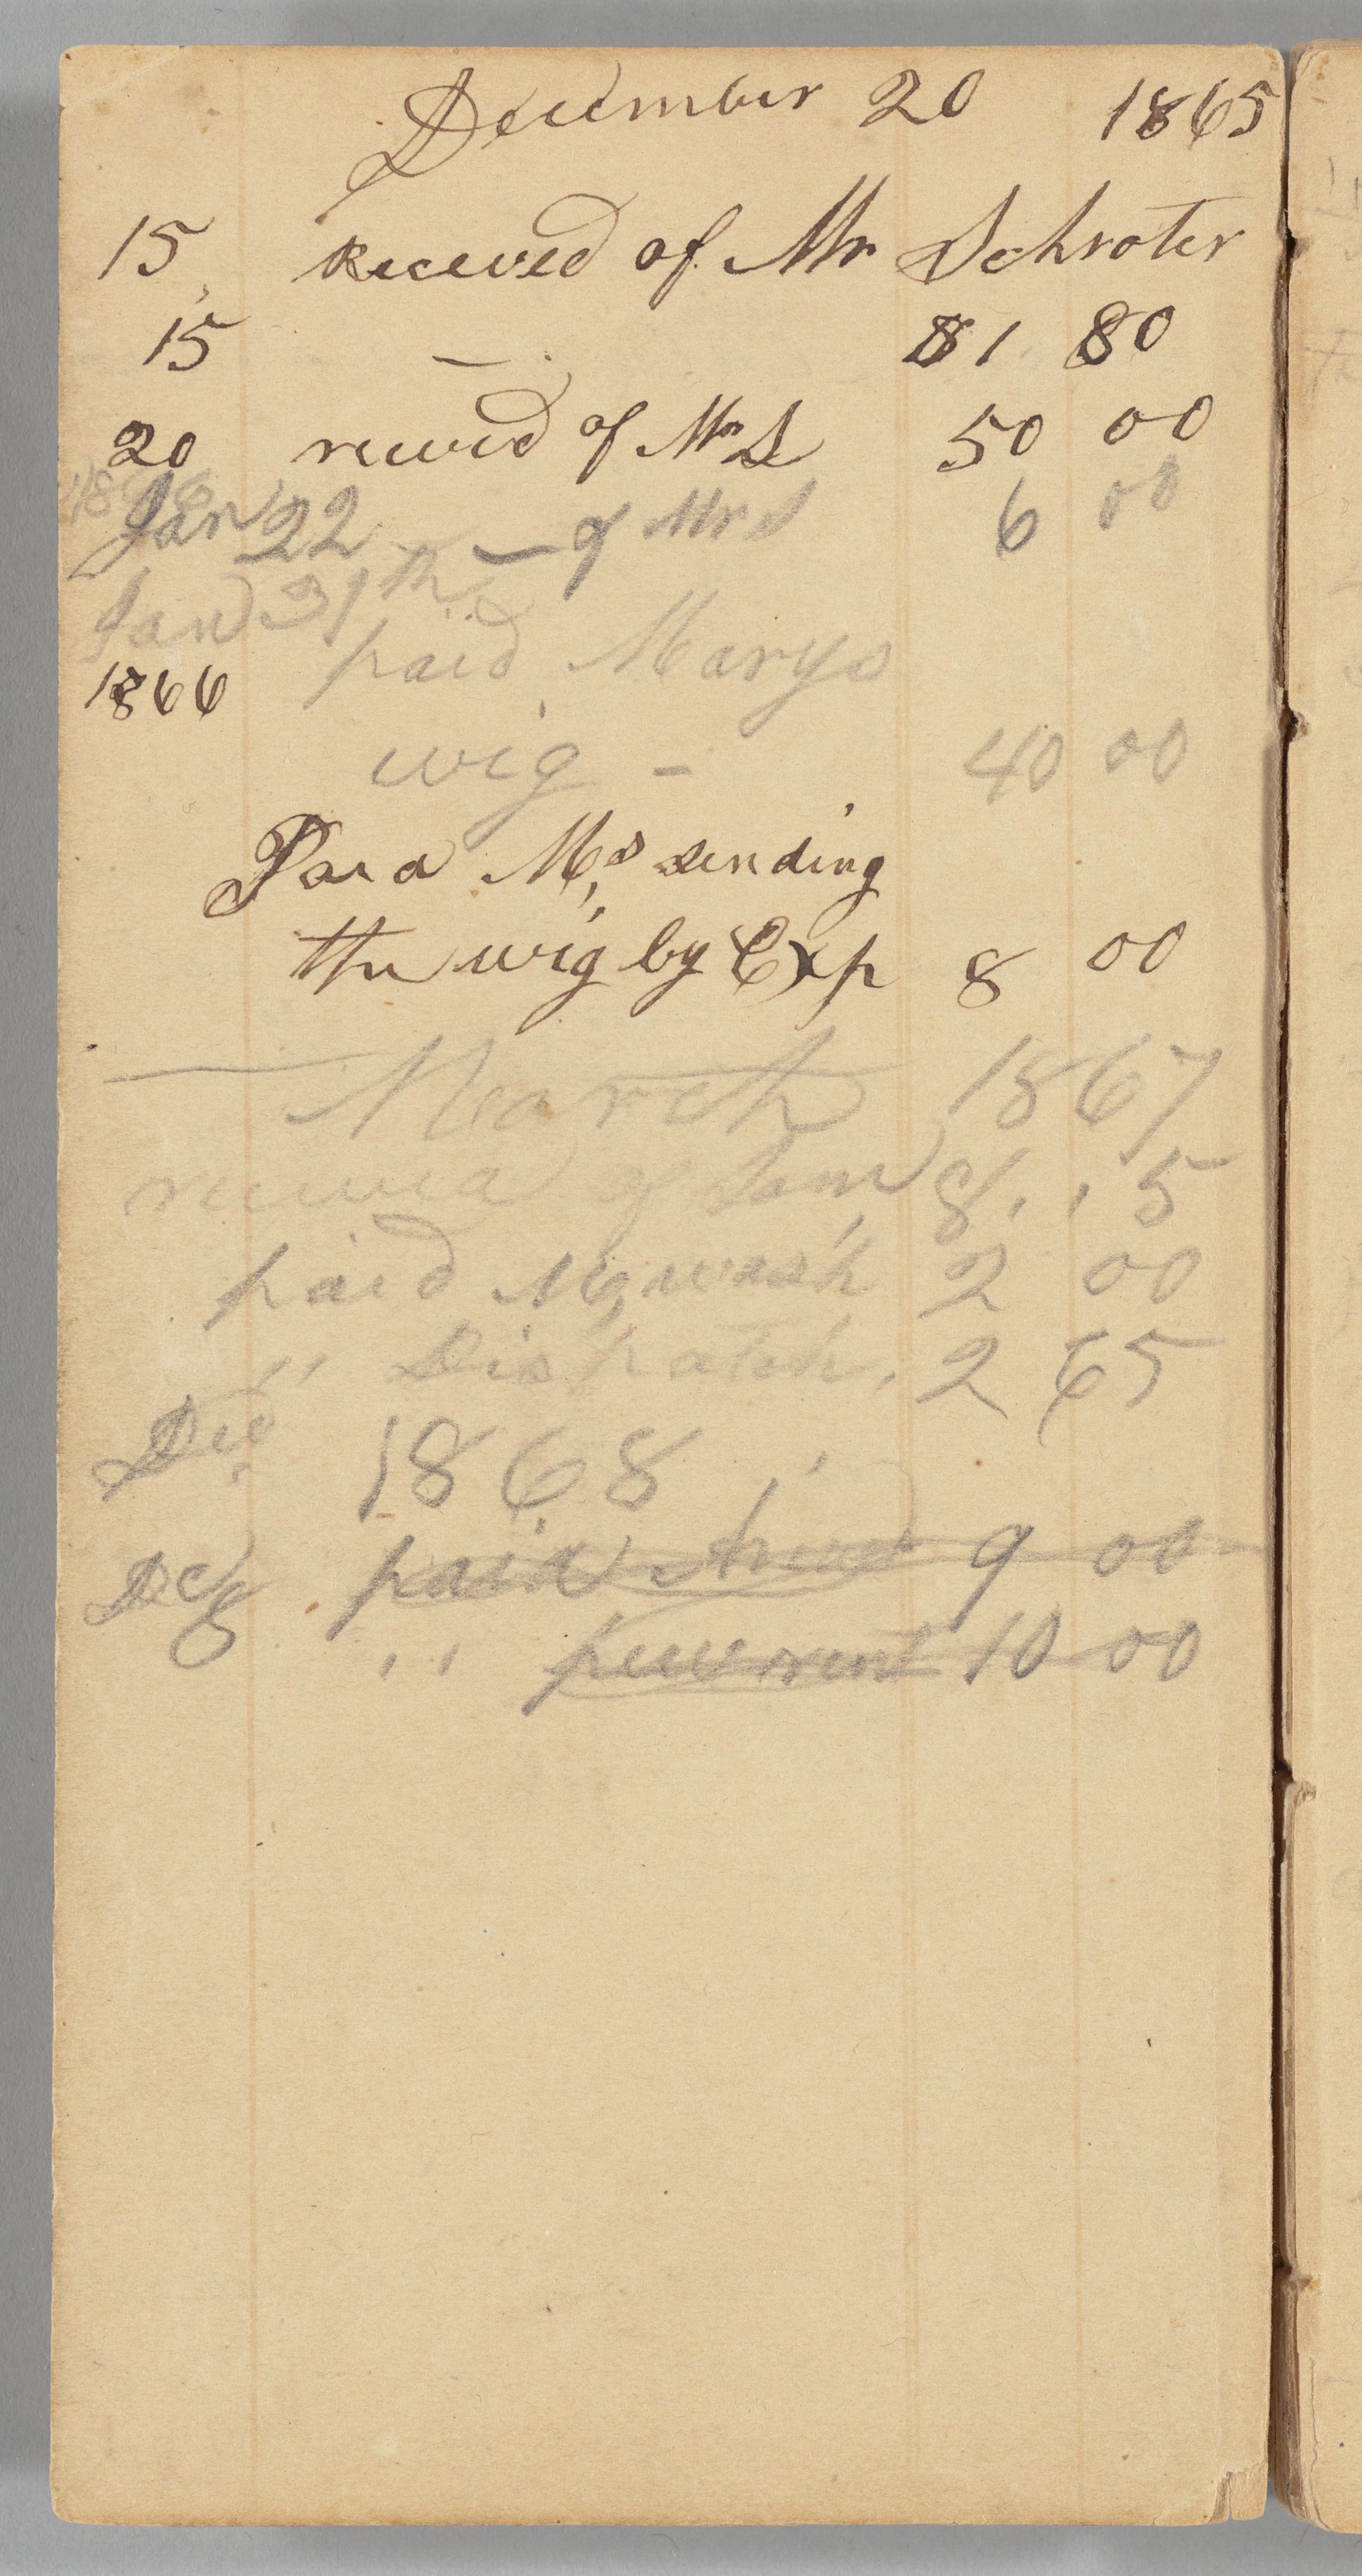 December 20 1865
15 Received of Mr Schroter
15 — 81 80
20 received of Mr S 50 00
Jan 22 — of Mr S 6 00
Jan 31th
1866 paid Marys
wig - 40 00
Paid M,s sending
the wig by Exp 8 00
March 1867
received of Sam 8 , , 5
paid Mg wash 2 00
,, Dispatch, 2 65
Dec 1868
Dec 8 paid 9 00
,, pew rent 10 00